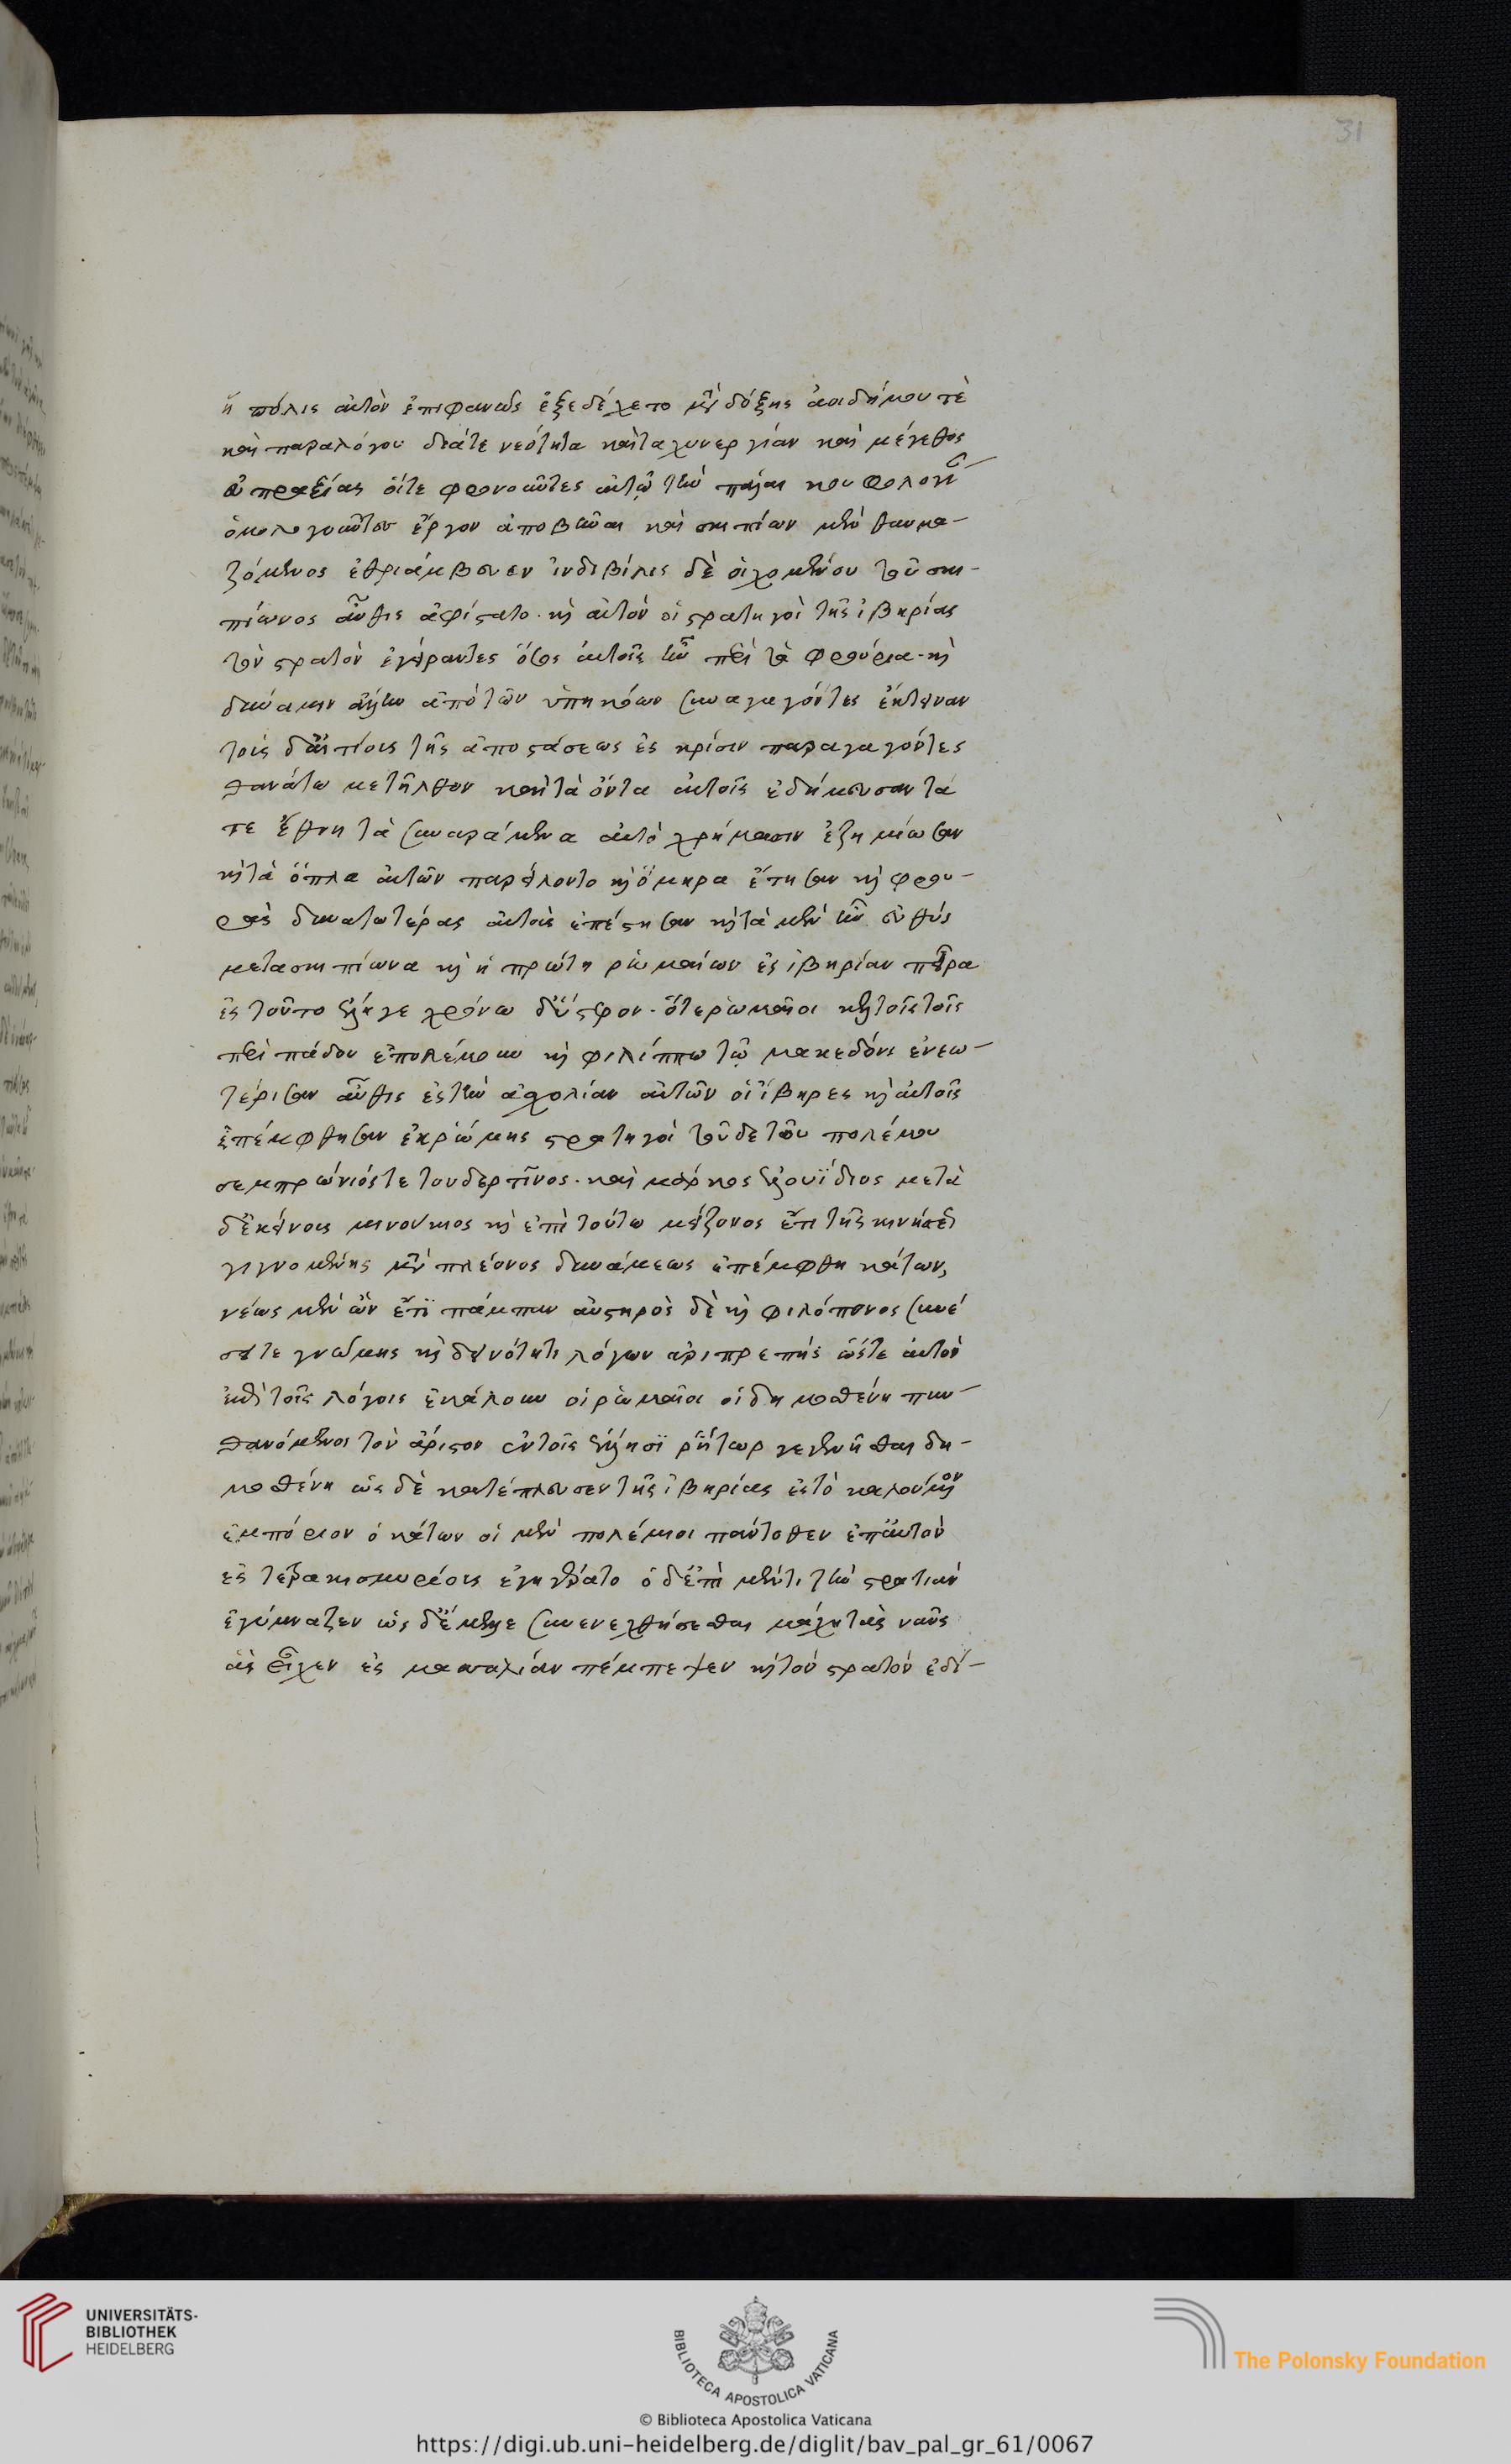 31
ἡ πόλις αὐτὸν ἐπιφανῶς ἐξεδέχετο μετὰ δόξης ἀοιδήμου τὲ
καὶ παραλόγου διά τε νεότητα καὶ ταχυνεργίαν καὶ μέγεθος
εὐπραξίας οἵτε φθονοῦντες αὐτῶ τὴν πάλαι κουφολογίαν
ὁμολογοῦσιν ἔργον ἀποβῆναι καὶ σκιπίων μὲν θαυμα-
ζόμενος ἐθριάμβευεν ἰνδιβίλις δὲ οἰχομένου τοῦ σκι-
πίωνος αὖθις ἀφίστατο. καὶ αὐτὸν οἱ στρατηγοὶ τῆς ἰβηρίας
τὸν στρατὸν ἐγείραντες ὅσος αὐτοῖς ἦν περὶ τὰ φρούρια. καὶ
δύναμιν ἄλλην ἀπὸ τῶν ὑπηκόων συναγαγόντες ἔκτειναν
τοὺς δ' αἰτίους τῆς ἀποστάσεως ἐς κρίσιν παραγαγόντες
θανάτω μετῆλθον καὶ τὰ ὄντα αὐτοῖς ἐδήμευσαν τά
τε ἔθνη τὰ συναράμενα αὐτὸ χρήμασιν ἐζημίωσαν
καὶ τὰ ὅπλα αὐτῶν παρείλοντο καὶ ὅμηρα ἤτησαν καὶ φρου-
ρὰς δυνατωτέρας αὐτοῖς ἐπέστησαν καὶ τὰ μὲν ἦν εὐθὺς
μετὰ σκιπίωνα καὶ ἡ πρώτη ῥωμαίων ἐς ἰβηρίαν πεῖρα
ἐς τοῦτο ἔληγε χρόνω δ' ὕστερον. ὅτε ῥωμαῖοι κελτοῖς τοῖς
περὶ πάδον ἐπολέμουν καὶ φιλίππω τῶ μακεδόνι ἐνεω-
τέρισαν αὖθις ἐς τὴν ἀσχολίαν αὐτῶν οἱ ἴβηρες καὶ αὐτοῖς
ἐπέμφθησαν ἐκ ῥώμης στρατηγοὶ τοῦδε τοῦ πολέμου
σεμπρώνιός τε τουδερτῖνος. καὶ μάρκος ἐλουΐδιος μετὰ
δ' ἐκείνους μινούκιος καὶ ἐπὶ τούτω μείζονος ἔτι τῆς κινήσεως
γιγνομένης μετὰ πλέονος δυνάμεως ἐπέμφθη κάτων,
νέος μὲν ὢν ἔτι πάμπαν αὐστηρὸς δὲ καὶ φιλόπονος συνέ
σει τε γνώμης καὶ δεινότητι λόγων ἀριπρεπὴς ὥστε αὐτὸν
ἐπὶ τοῖς λόγοις ἐκάλουν οἱ ῥωμαῖοι δημοσθένη πυν-
θανόμενοι τὸν ἄριστον ἐν τοῖς ἕλλησι ῥήτωρ γεγενῆσθαι δη-
μοσθένη ὡς δὲ κατέπλευσεν τῆς ἰβηρίας ἐς τὸ καλούμενον
ἐμπόριον ὁ κάτων οἱ μὲν πολέμιοι πάντοθεν ἐπ' αὐτὸν
ἐς τετρακισμυρίους ἐγηγέρατο ὁ δ' ἐπὶ μέν τι τὴν στρατιὰν
ἐγύμναζεν ὡς δ' ἔμελλε συνενεχθήσεσθαι μάχη τὰς ναῦς
ἃς εἶχεν ἐς μασσαλίαν πέμπεψεν καὶ τὸν στρατὸν ἐδί-
UNIVERSITÄTS-
BIBLIOTHEK
HEIDELBERG
BIBLIOTECA APOSTOLICA VATICANA
The Polonsky Foundation
© Biblioteca Apostolica Vaticana
https://digi.ub.uni-heidelberg.de/diglit/bav_pal_gr_61/0067